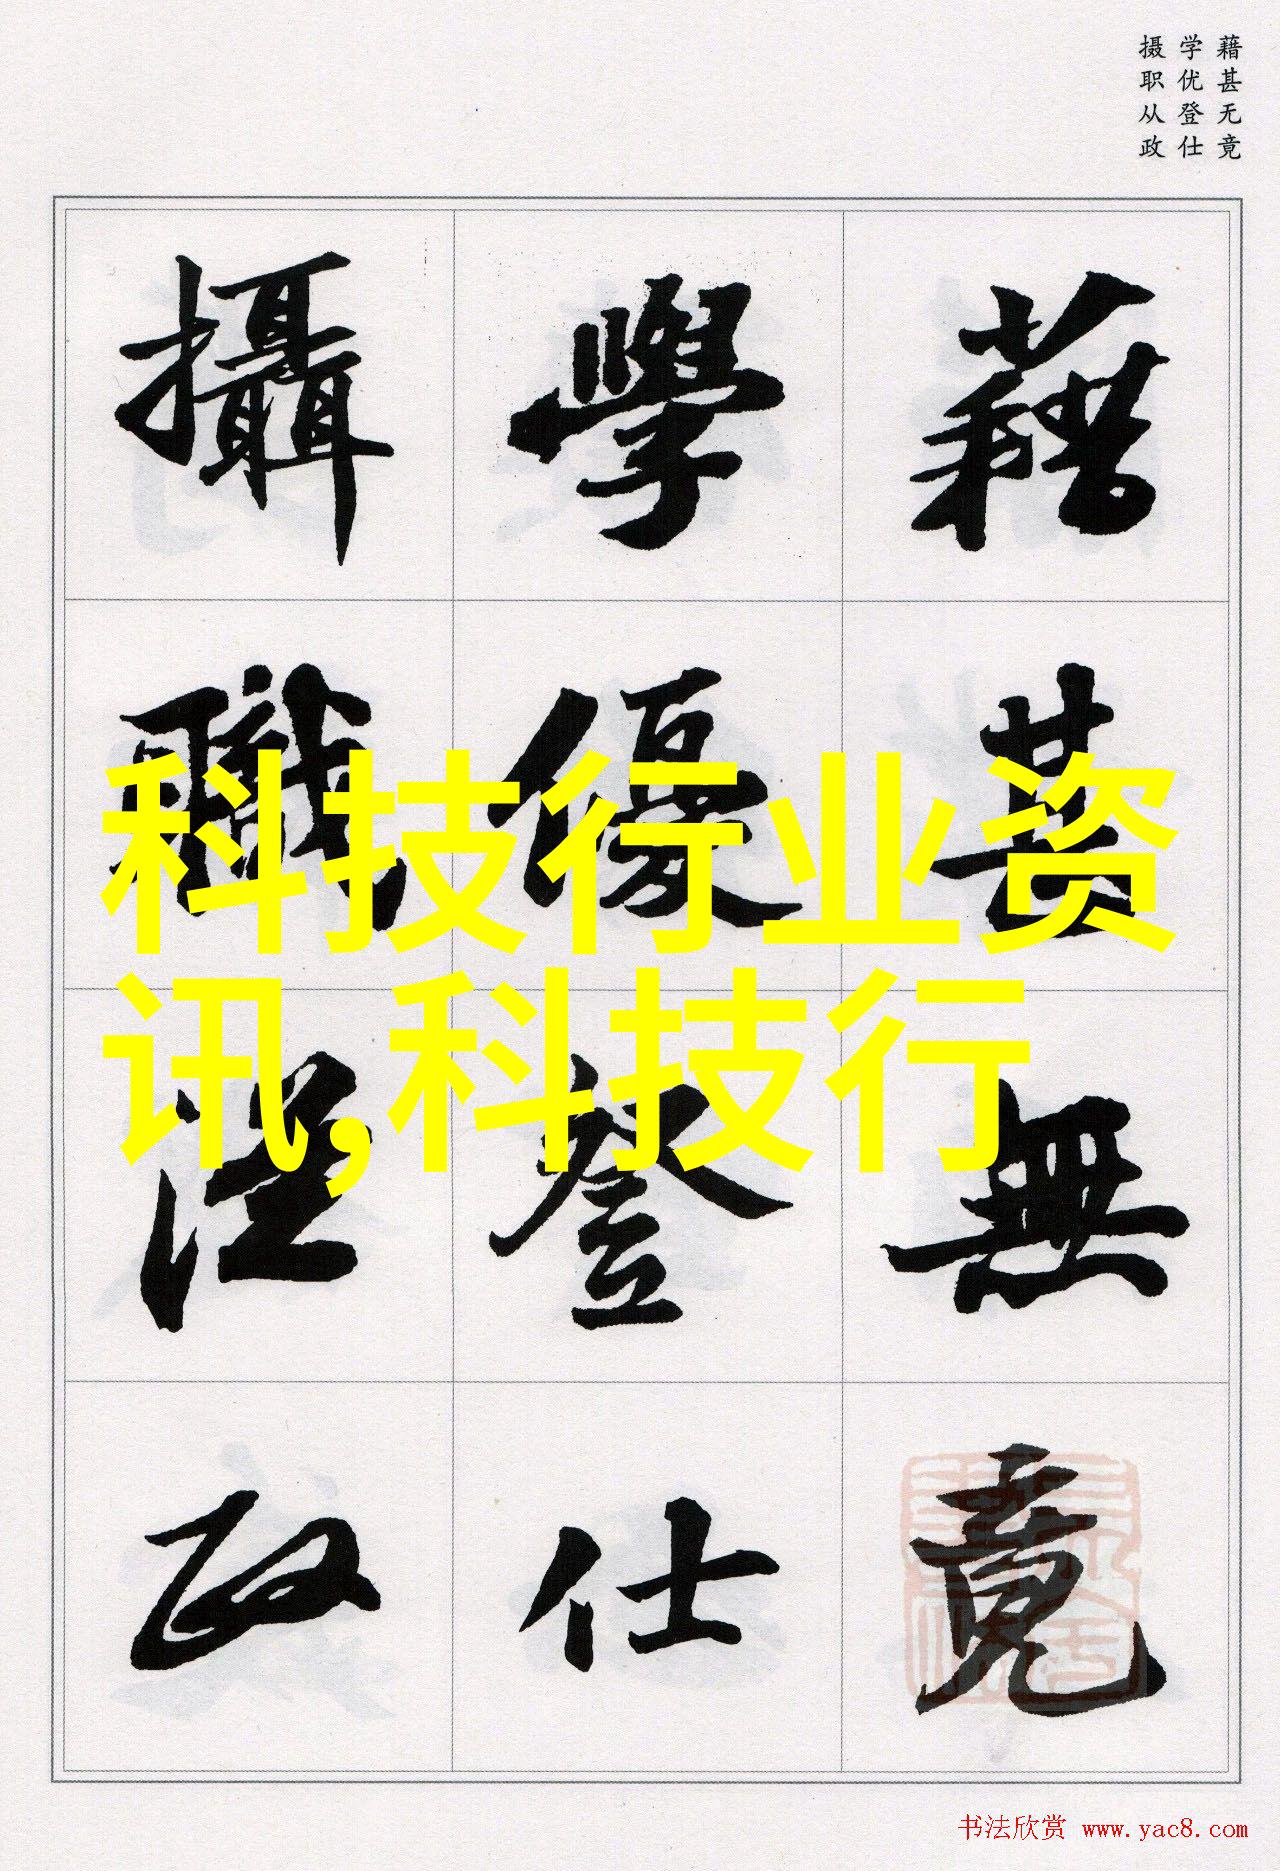 藉甚无竟
学优登仕
摄职从政
藉甚無竟
學優登仕
攝職従政
科技行业资
讯,科技行
书法欣赏 www.yac8.com